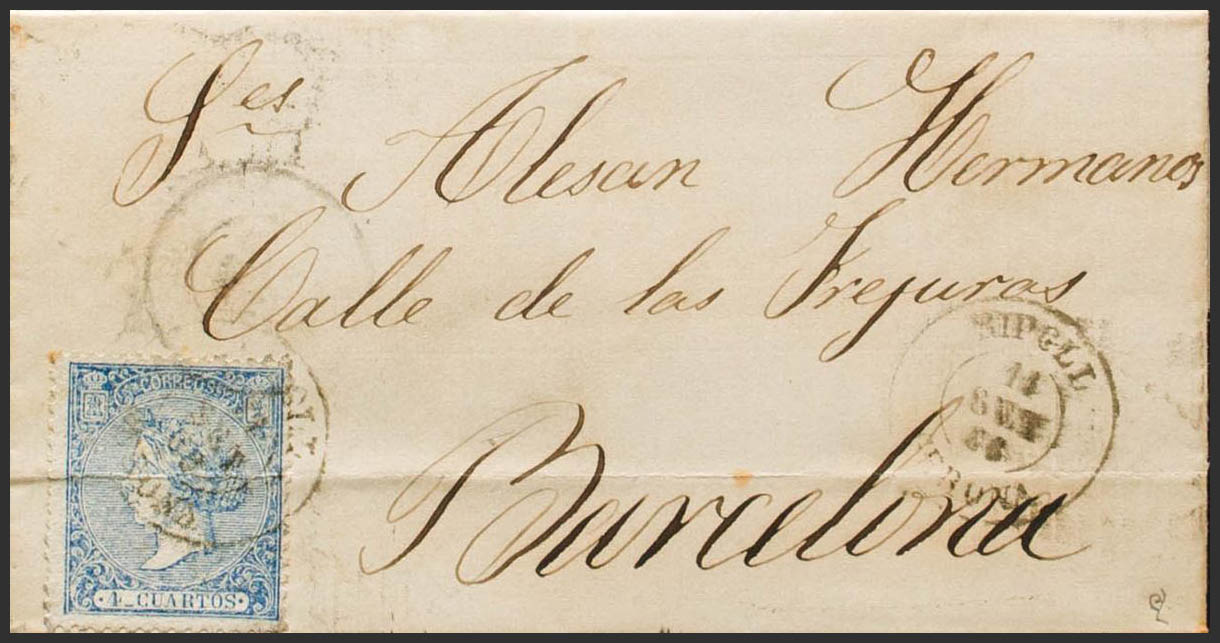 Sres Alesan Hermanos
Calle de las Frejuras
Barcelona
RIPOLL
14
JUN
66
GERONA
CORREOS
4 CUARTOS